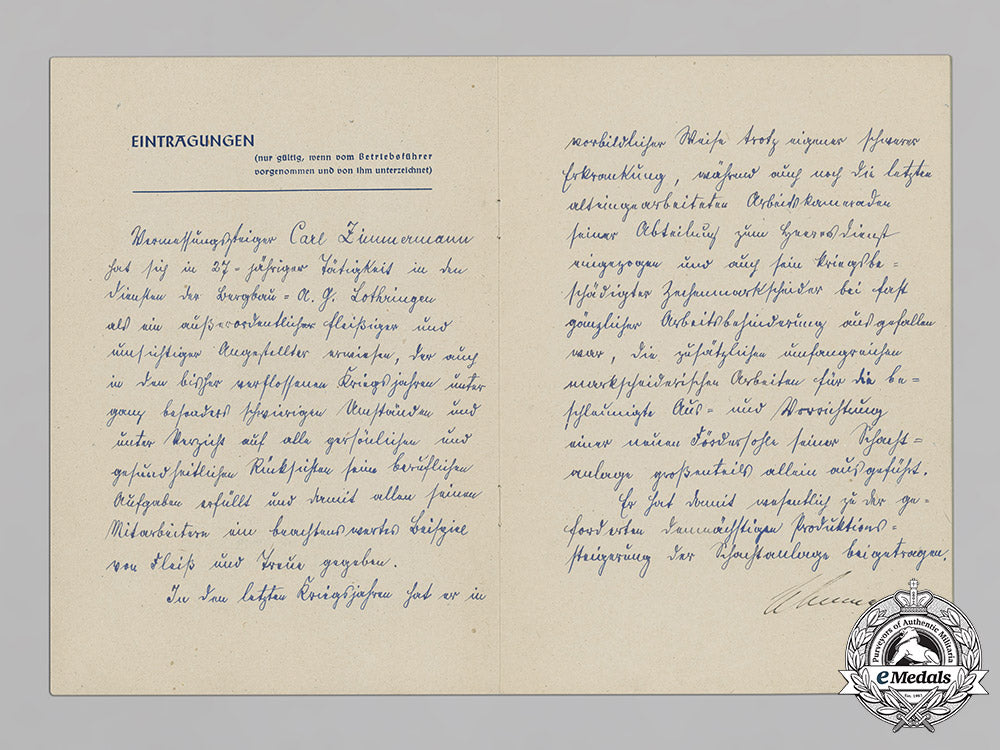 EINTRAGUNGEN
(nur gültig, wenn vom Betriebsführer
vorgenommen und von ihm unterzeichnet)
Vermessungssteiger Carl Zimmermann
hat sich in 27-jähriger Tätigkeit in den
Diensten der Bergbau=A.G. Lothringen
als ein außerordentlicher fleißiger und
umsichtiger Angestellter erwiesen, der auch
in den bisher verflossenen Kriegsjahren unter
ganz besonders schwierigen Umständen und
unter Verzicht auf alle persönlichen und
gesundheitlichen Rücksichten seine beruflichen
Aufgaben erfüllt und damit allen seinen
Mitarbeitern ein beachtenswertes Beispiel
von Fleiß und Treue gegeben.
In den letzten Kriegsjahren hat er in
vorbildlicher Weise trotz eigener schwerer
Erkrankung, während auch noch die letzten
alteingearbeiteten Arbeitskameraden
seiner Abteilung zum Heeresdienst
eingezogen und auch sein kriegsbe=
schädigter Zechenmarkscheider bei fast
gänzlicher Arbeitsbehinderung ausgefallen
war, die zusätzlichen umfangreichen
markscheiderischen Arbeiten für die be=
schleunigte Aus= und Vorrichtung
einer neuen Fördersohle seiner Schacht=
anlage großenteils allein ausgeführt.
Er hat damit wesentlich zu der ge=
forderten demnächstigen Produktions=
steigerung der Schachtanlage beigetragen.
Purveyors of Authentic Militaria
eMedals
Est. 1967